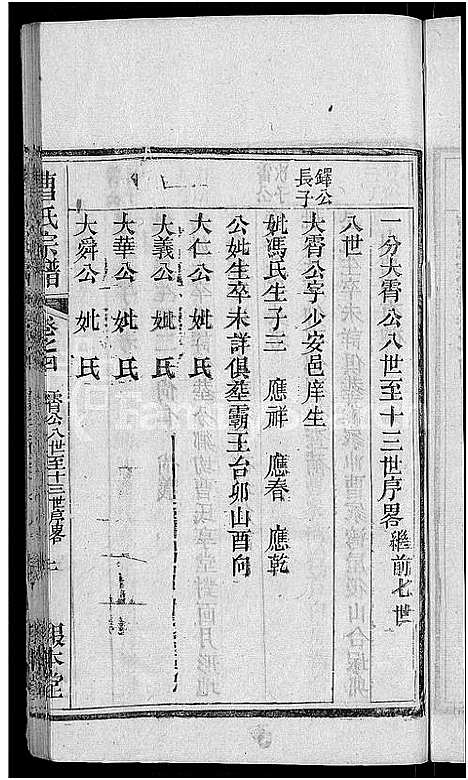 一分大霄公八世至十三世序畧 繼前七世
八世
鐸公長子
大霄公字少安邑庠生
妣馮氏生子三 應祥 應春 應乾
公妣生卒未詳俱塟霸王台卯山酉向
大仁公 妣 氏
大義公 妣 氏
大華公 妣 氏
大舜公 妣 氏
曹氏宗譜 卷之四 霄公八世至十三世序畧 七 報本堂